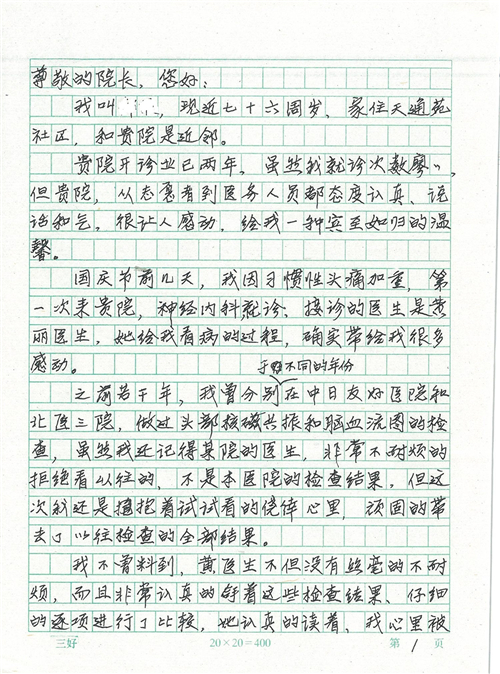 尊敬的院长，您好：
我叫，现近七十六周岁，家住天通苑
社区，和贵院是近邻。
贵院开诊业已两年，虽然我就诊次数寥〃，
但贵院，从志愿者到医务人员都态度认真、说
话和气，很让人感动，给我一种宾至如归的温
馨。
国庆节前几天，我因习惯性头痛加重，第
一次来贵院，神经内科就诊，接诊的医生是黄
丽医生，她给我看病的过程，确实带给我很多
感动。
于不同的年份
之前若干年，我曾分别在中日友好医院和
北医三院，做过头部核磁共振和脑血流图的检
查，虽然我还记得某院的医生，非常不耐烦的
拒绝看以往的，不是本医院的检查结果，但这
次我还是抱着试试看的侥倖心里，顽固的带
去了以往检查的全部结果。
我不曾料到，黄医生不但没有丝毫的不耐
烦，而且非常认真的看着这些检查结果、仔细
的逐项进行了比较，她认真的读着，我心里被
三好 20×20=400 第 1 页